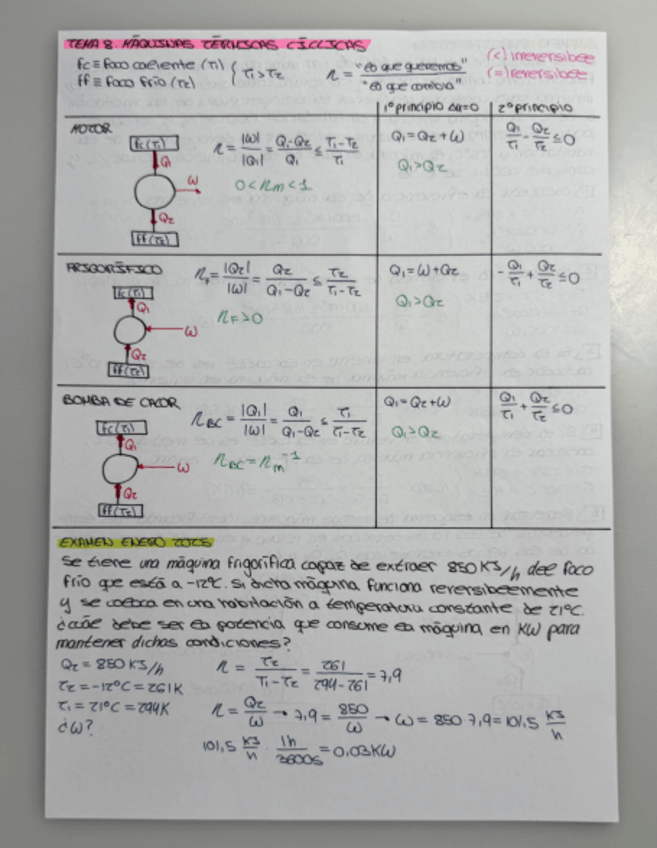 TEMA 8. MÁQUINAS TÉRMICAS CÍCLICAS
fc ≡ foco caliente (T1)
ff ≡ foco frío (T2) { T1 > T2
η = "lo que queremos" / "lo que cuesta"
(<) irreversible
(=) reversible
1º principio Δu=0 2º principio
MOTOR
fc(T1)
Q1
W
Q2
ff(T2)
η = |W|/|Q1| = Q1-Q2/Q1 ≤ T1-T2/T1
0 < ηm < 1
Q1 = Q2 + W
Q1 > Q2
Q1/T1 - Q2/T2 ≤ 0
FRIGORÍFICO
fc(T1)
Q1
W
Q2
ff(T2)
ηF = |Q2|/|W| = Q2/Q1-Q2 ≤ T2/T1-T2
ηF > 0
Q1 = W + Q2
Q1 > Q2
-Q1/T1 + Q2/T2 ≤ 0
BOMBA DE CALOR
fc(T1)
Q1
W
Q2
ff(T2)
ηBC = |Q1|/|W| = Q1/Q1-Q2 ≤ T1/T1-T2
ηBC = ηm⁻¹
Q1 = Q2 + W
Q1 > Q2
Q1/T1 + Q2/T2 ≤ 0
EXAMEN ENERO 2025
Se tiene una máquina frigorífica capaz de extraer 850 KJ/h del foco
frío que está a -12ºC. Si dicha máquina funciona reversiblemente
y se coloca en una habitación a temperatura constante de 21ºC.
¿cuál debe ser la potencia que consume la máquina en KW para
mantener dichas condiciones?
Q2 = 850 KJ/h
T2 = -12ºC = 261K
T1 = 21ºC = 294K
¿W?
η = T2/T1-T2 = 261/294-261 = 7,9
η = Q2/W → 7,9 = 850/W → W = 850·7,9 = 101,5 KJ/h
101,5 KJ/h · 1h/3600s = 0,03 KW